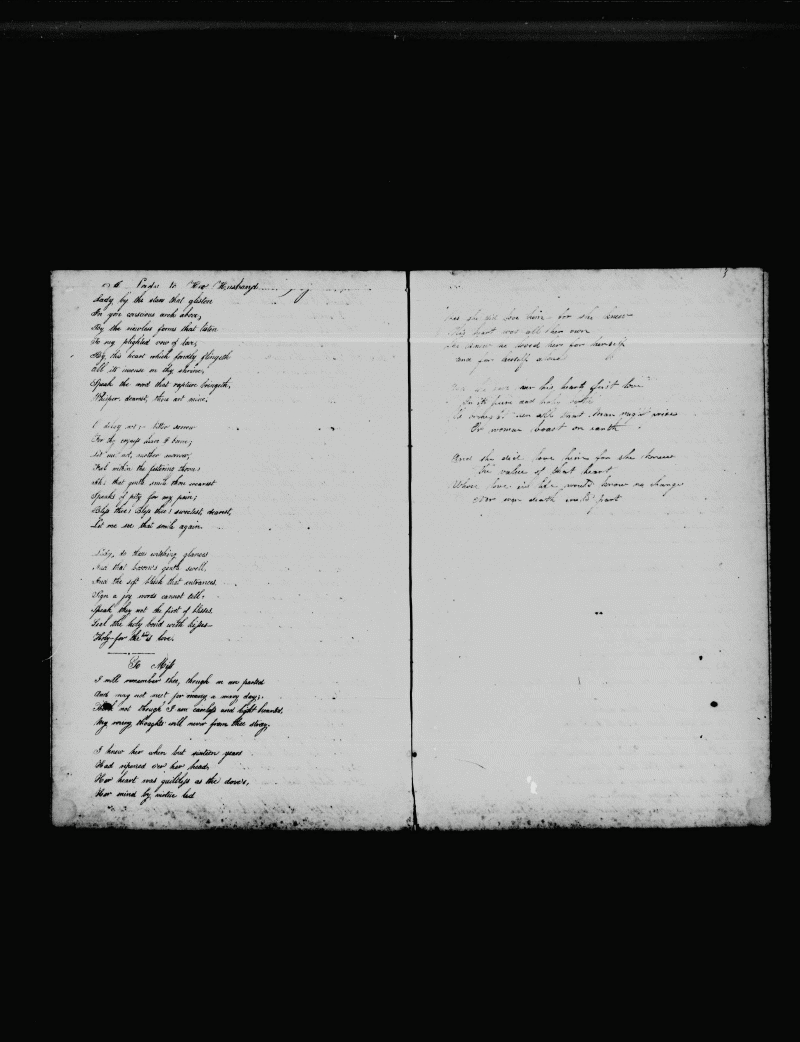 to Her Husband
Lady, by the stars that glisten
In yon conscious arch above,
By the viewless forms that listen
To my plighted vow of love;
By this heart which fondly flingeth
All its incense on thy shrine,
Speak the word that rapture bringeth,
Whisper, dearest, thou art mine.
bitter sorrow
For thy
not, mother
within the festering thorn;
Ah! that gentle smile thou wearest
Speaks of pity for my pain;
Bless thee! Bless thee! sweetest, dearest,
Let me see that smile again.
Lady, do those witching glances
And that bosom's gentle swell,
And the soft blush that entrances
Sign a joy words cannot tell?
Speak they not the
Seal the holy bond with kisses
Holy for the is love.
To Miss
I will remember thee, though we are parted
And may not meet for many a weary day;
not though I am careless and light hearted,
My weary thoughts will never from thee stray.
I knew her when but sixteen years
Had opened o'er her head,
Her heart was guiltless as the dove's,
Her mind by virtue led
she did love him for she knew
His heart was all her own
She knew he wooed her for herself
and for herself alone
her his heart's first love
In its pure and holy
all that man might
Or woman boast on earth
And she did love him for she knew
The value of that heart
Whose love in life would know no change
Nor even death could part